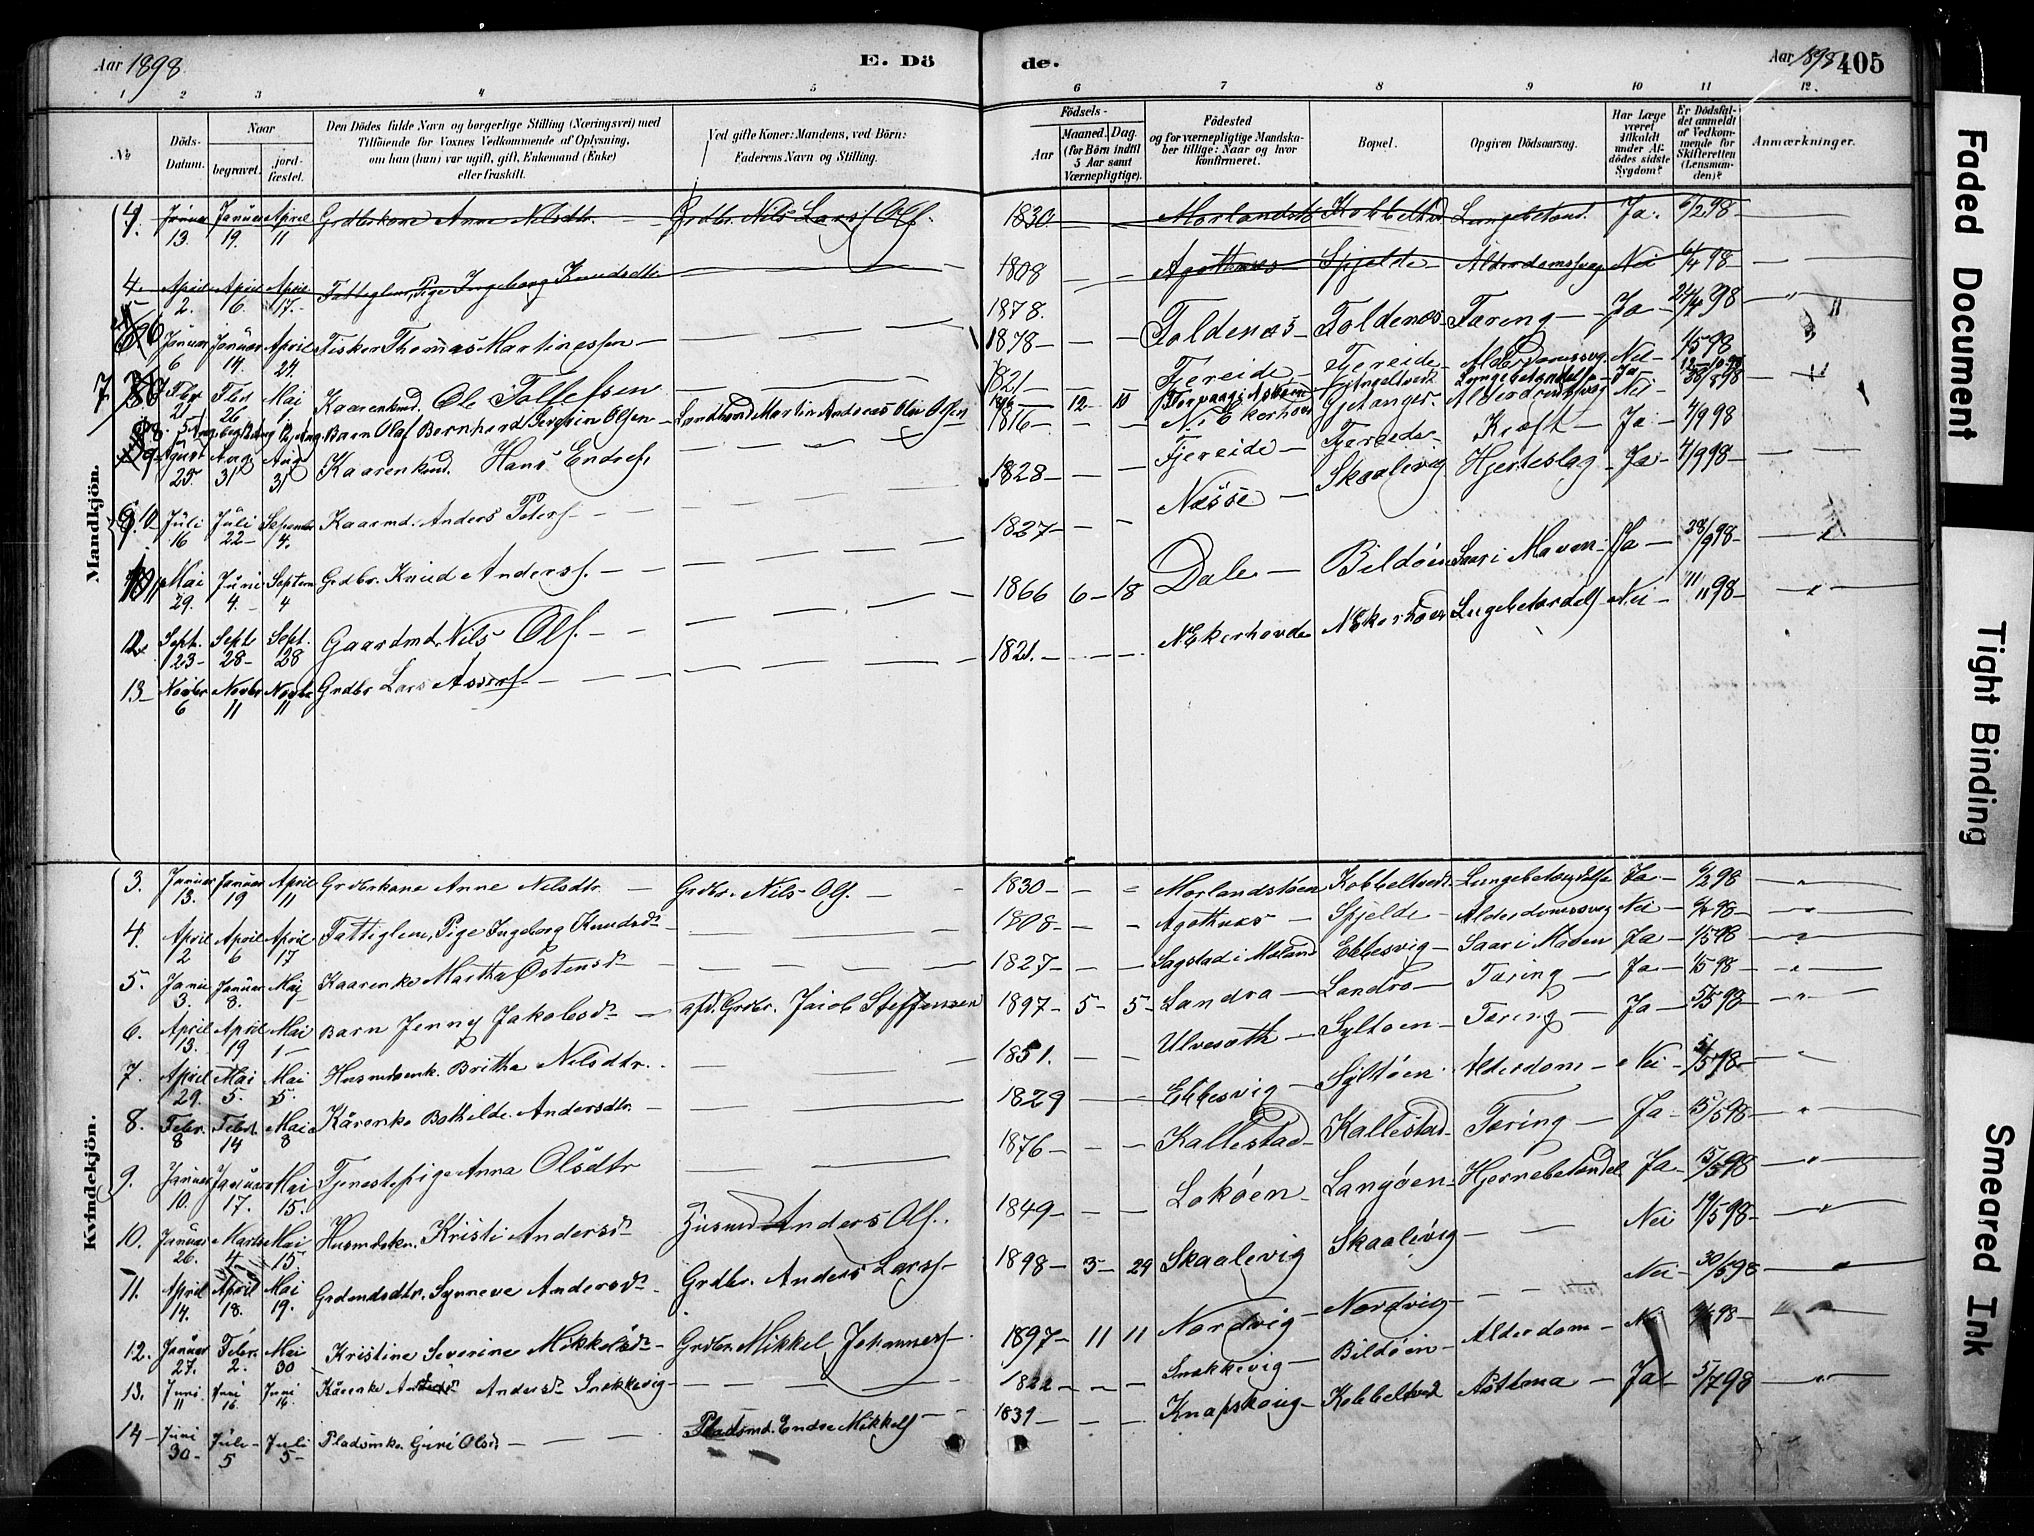 Aar 1898. E. Dö de. Aar 1898 405
1 2 3 4 5 6 7 8 9 10 11 12.
№
Döds-Datum.
Naar begravet. jord-fæstet.
Den Dödes fulde Navn og borgerlige Stilling (Næringsvei) med Tilföiende for Voxnes Vedkommende af Oplysning, om han (hun) var ugift, gift, Enkemand (Enke) eller fraskilt.
Ved gifte Koner: Mandens, ved Börn: Faderens Navn og Stilling.
Födsels-
Aar Maaned. Dag. (for Börn indtil 5 Aar samt Værnepligtige).
Födested og for værnepligtige Mandska-ber tillige: Naar og hvor konfirmeret.
Bopæl.
Opgiven Dödsaarsag.
Har Læge været tilkaldt under Af-dödes sidste Sygdom?
Er Dödsfal-det anmeldt af Vedkom-mende for Skifteretten (Lensman-den)?
Anmærkninger.
Mandkjön.
4. Januar 13. Januar 19. April 11 Grdbrskone Anne Nilsdtr. — Grdbr. Nils Olss. 1830 — — Morlandstö Kobbeltvedt Lungebetænd. Ja. 6/2 98 —
4. April 2. April 6. April 17. Fattiglem, Pige Ingeborg Knudsdtr 1808 — — Agotnæs Spjelde Alderdomssvag Nei 6/4 98 —
Januar 6 Januar 14. April 24. Fisker Thomas Martinessen — 1878. Toldenæs Toldenæs Tæring — Ja — 24/4 98 — "
7 Febr 21 Febr 26 Mai 1. Kaarenkmd. Ole Tollefsen 1821 — Fjereide — Fjereide Alderdomssvag Nei — 1/5 98
8. Barn Olaf Bernhard Severin Olsen — Landhand. Martin Andreas Olai Olsen 12 — 10 Lungebetændels Ja
9 August 25 Aug. 31 Aug 31 Kaarenkmd. Hans Endres. 1816 — — N. Ekerhovd Gjetanger. Alderdomssvag Nei —
10 Juli 16 Juli 22 — September 4. Kaarmd. Anders Peters — 1828 — — Fjereide — Fjereide — Kræft — Ja — 4/9 98
11 Mai 29. Juni 4. — Septem 4 Grdbr. Knud Anderss. — 1827 — — Næsse — Skaalevig Hjerteslag — Ja — 4/9 98 —
12. Sept. 23 — Sept 28 — Sept. 28 Gaardmd. Nils Olss. — 1866 6 — 18 Dale — Bildöen Saar i Maven. Ja — 28/9 98 —
13 — Novbr 6 Novbr 11 Novbr 11 Grdbr Lars Assers. — 1821. — N. Ekerhovde N. Ekerhovd Lungebetændels Nei — 11/11 98 —
Kvindekjön.
3. Januar 13. Januar 19 April 11 Grdbrskone Anne Nilsdtr. — Grdbr. Nils Olss. — 1830 — — Morlandstöen Kobbeltvedt Lungebetændelse Ja — 6/2 98 — "
4. April 2 April 6 April 17 Fattiglem, Pige Ingeborg Knudsdr 1808 — — Agotnæs — Spjelde — Alderdomssvag Nei — 6/4 98 — "
5. Janu 3. Januar 8. Maj Kaarenke Martha Östensdr 1827 — — Sagstad i Mæland Ebbesvig — Saar i Maven Ja — 1/5 98 — "
6. April 13. April 19 Mai 1 — Barn Jenny Jakobsdr — afd. Grdbr. Jacob Steffensen 1897 5 — 5 — Landra — Landro — Tæring — Ja — 1/5 98 — "
7. April 29. Mai 5. Mai 5. Husmdsenk. Britha Nilsdtr. 1851. — — Ulvesæth — Syltöen — Tæring — Ja — 5/5 98 — "
8. Febr. 8 Febr 14 Mai 8 Kårenke Bothilde Andersdtr. — 1829 — — Ebbesvig — Syltöen. Alderdom — Nei — 5/5 98 — "
9. Januar 10. Januar 17. Mai 15. Tjenestepige Anna Olsdtr 1876 — — Kallestad — Kallestad — Tæring — Ja — 15/5 98 — "
10. Januar 26. Marts 4 — Mai 15 Husmdskn. Kristi Andersdr Husmd Anders Olss. 1849 — — Loköen — Langöen — Hjernebetændel Ja — 15/5 98 — "
11. April 14. April 18. Mai 19. Grdmdsdtr. Synneve Andersdr Grdbr. Anders Larss. 1898 — 3 — 29 Skaalevig Skaalevig — — Nei 19/5 98 — "
12. Januar 27. Febr. 2. Mai 30 Kristine Severine Mikkelsdr — Grdbr Mikkel Johanness. 1897 — 11 11 Nordvig — Nordvig — — Nei — 30/5 98 — "
13. Juni 11 Juni 16. Juni 16. Kårenke Andersdr Snekkevig — 1822 — — Snekkevig — Bildöen — Alderdom — Nei 98 — "
14 — Juni 30 — Juli 5 Juli 5 — Pladsmke. Guri Olsd — Pladsmd. Endre Mikkels 1839 — — Knapskoug — Kobbeltvedt Asthma — Ja 5/7 98 — "
Faded Document
Tight Binding
Smeared Ink